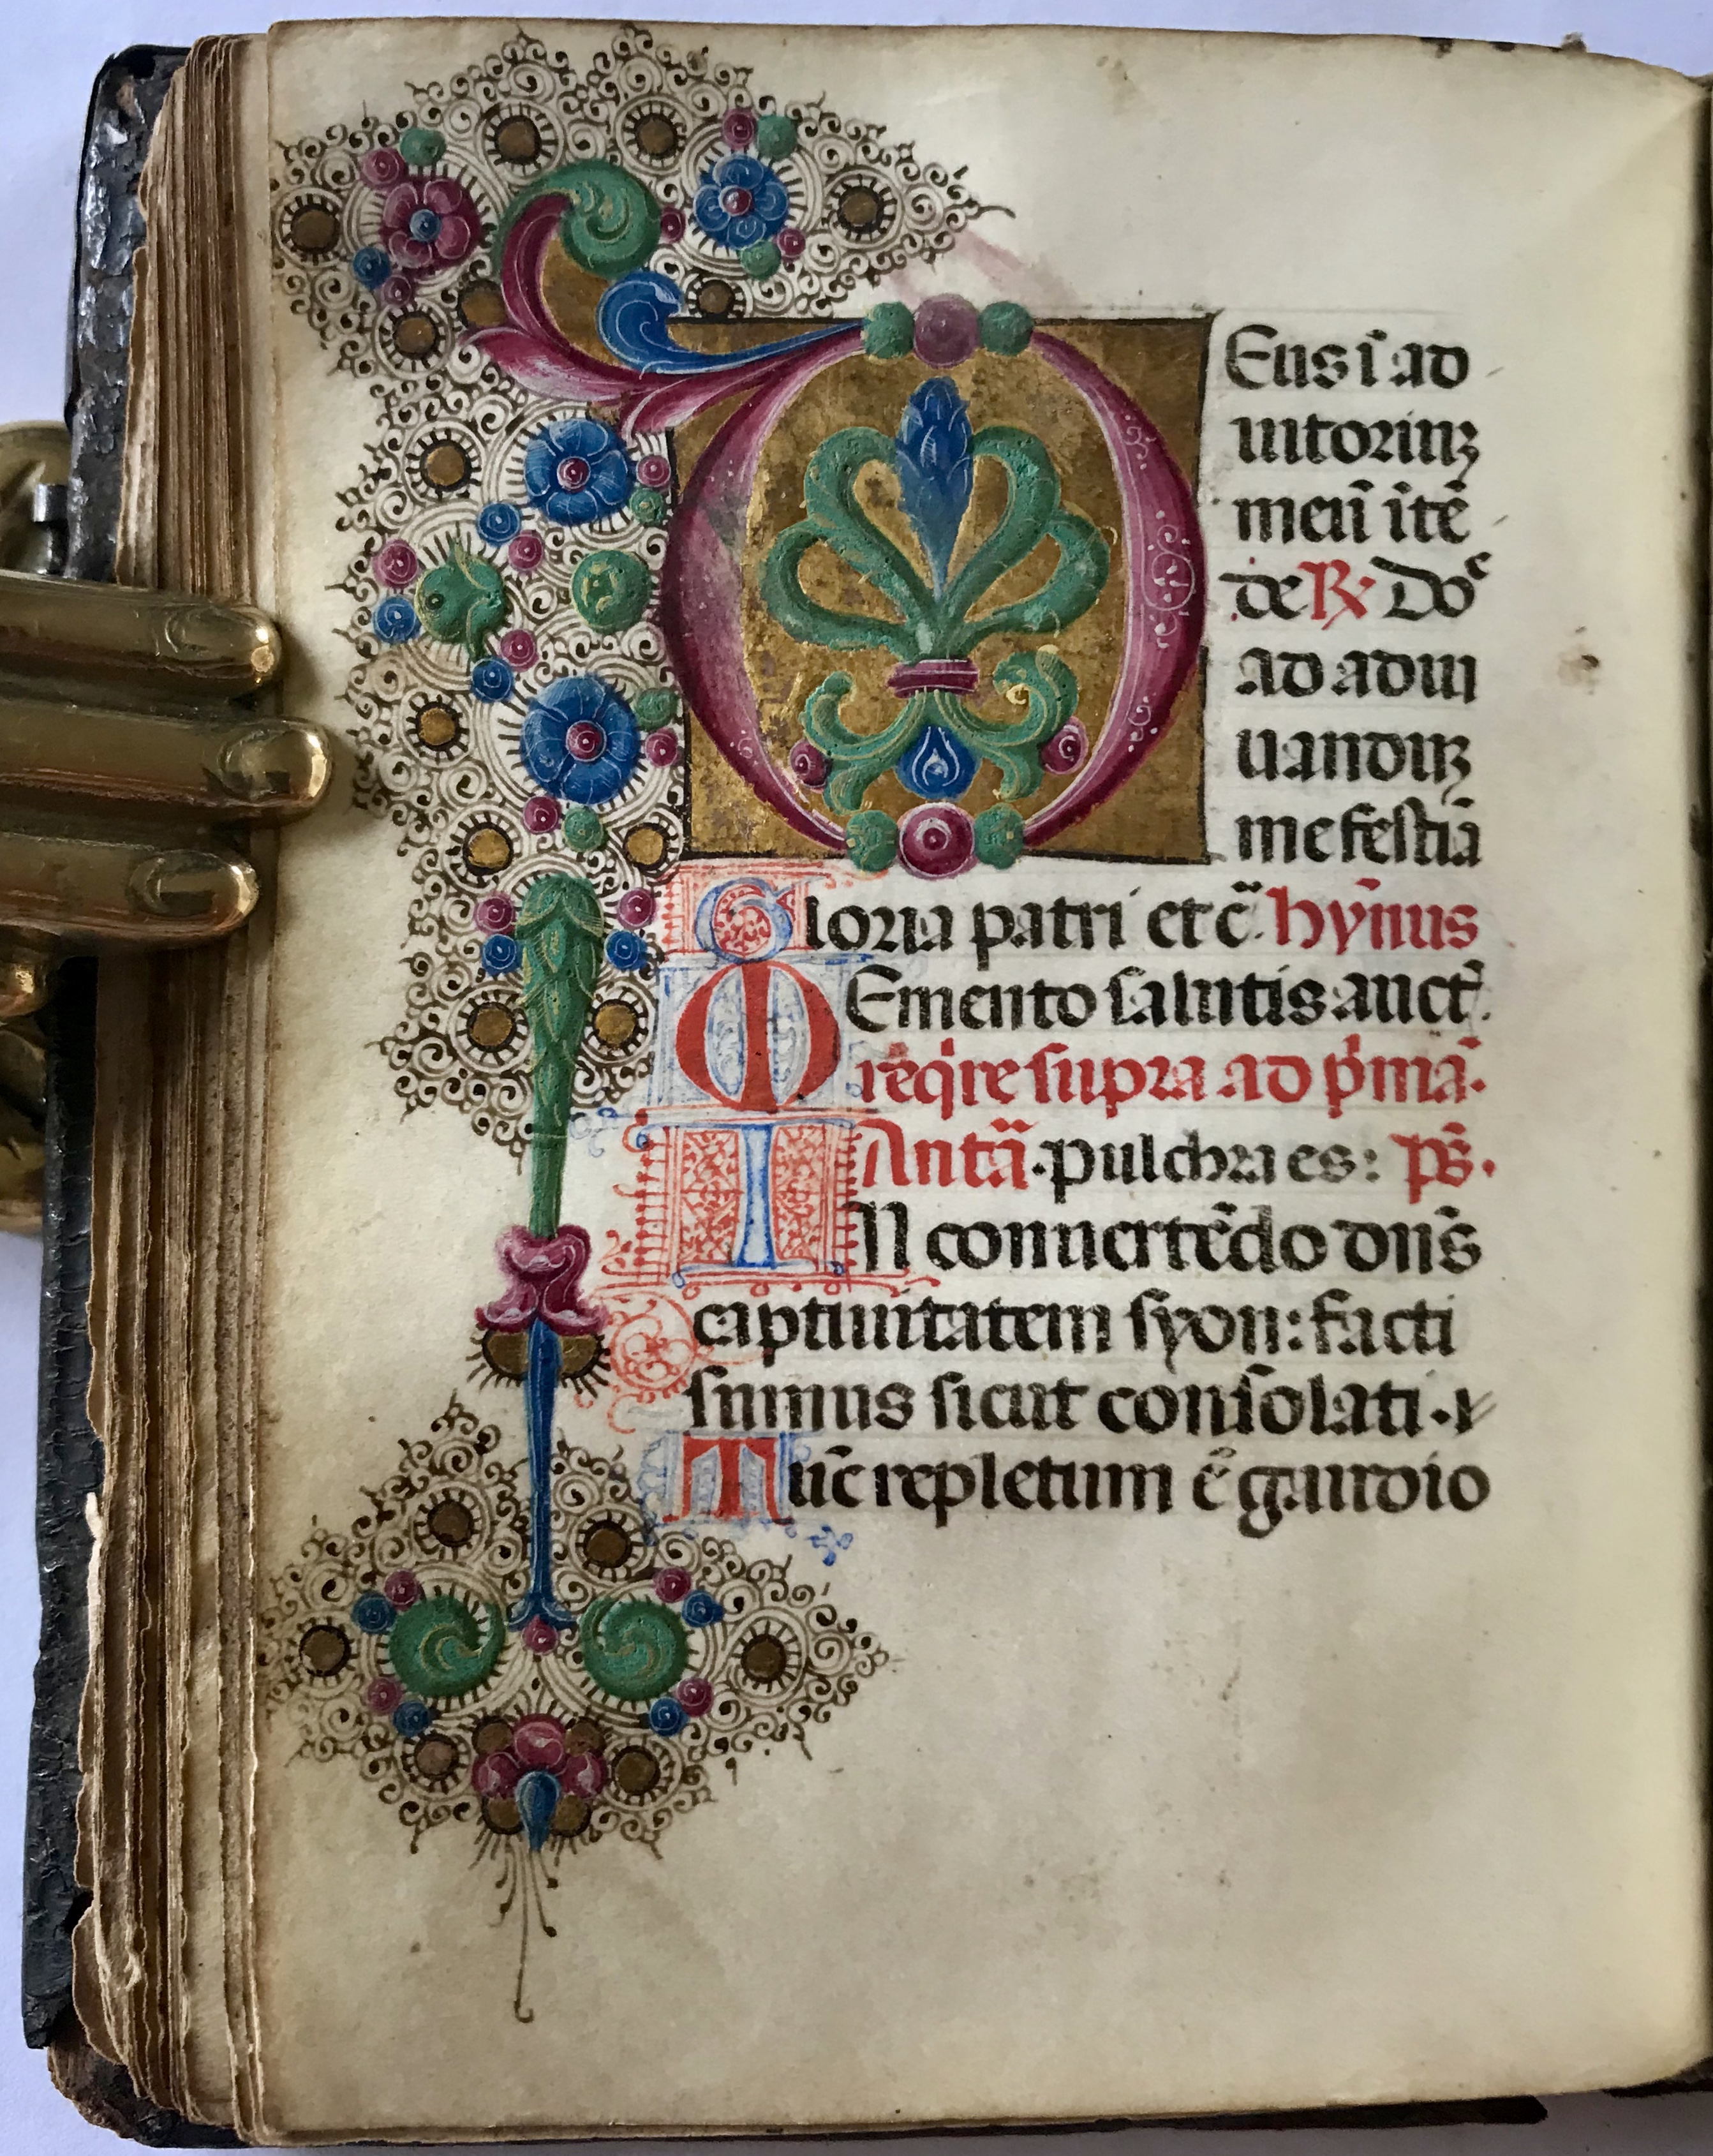 DEus ī ad
iutoriuꝫ
meū ītē
de ℞ Dōᶜ
ad adiu
uanduꝫ
me festiā
Gloria patri et c̄. hyn̄us
MEmento salutis auct̄.
reqͥre supra ad pͥmā.
Antā. pulchra es: ps̄.
IN conuertēdo dn̄s
captiuitatem syon: facti
sumus sicut consolati.
Tūc repletum ē gaudio